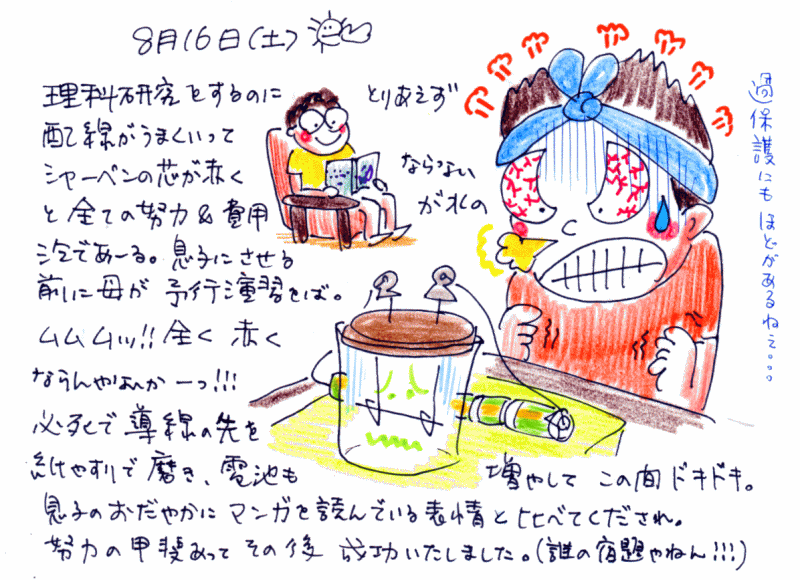 8月16日(土)
理科研究をするのに とりあえず
配線がうまくいって
シャーペンの芯が赤く ならない
と全ての努力&費用 が水の
泡であーる。息子にさせる
前に母が予行演習をば。
ムムムッ!!全く赤く
ならんやないかーっ!!!
必死で導線の先を
紙やすりで磨き、電池も 増やしてこの間ドキドキ。
息子のおだやかにマンガを読んでいる表情と比べてくだされ。
努力の甲斐あってその後成功いたしました。(誰の宿題やねん!!!)
過保護にもほどがあるねぇ。。。